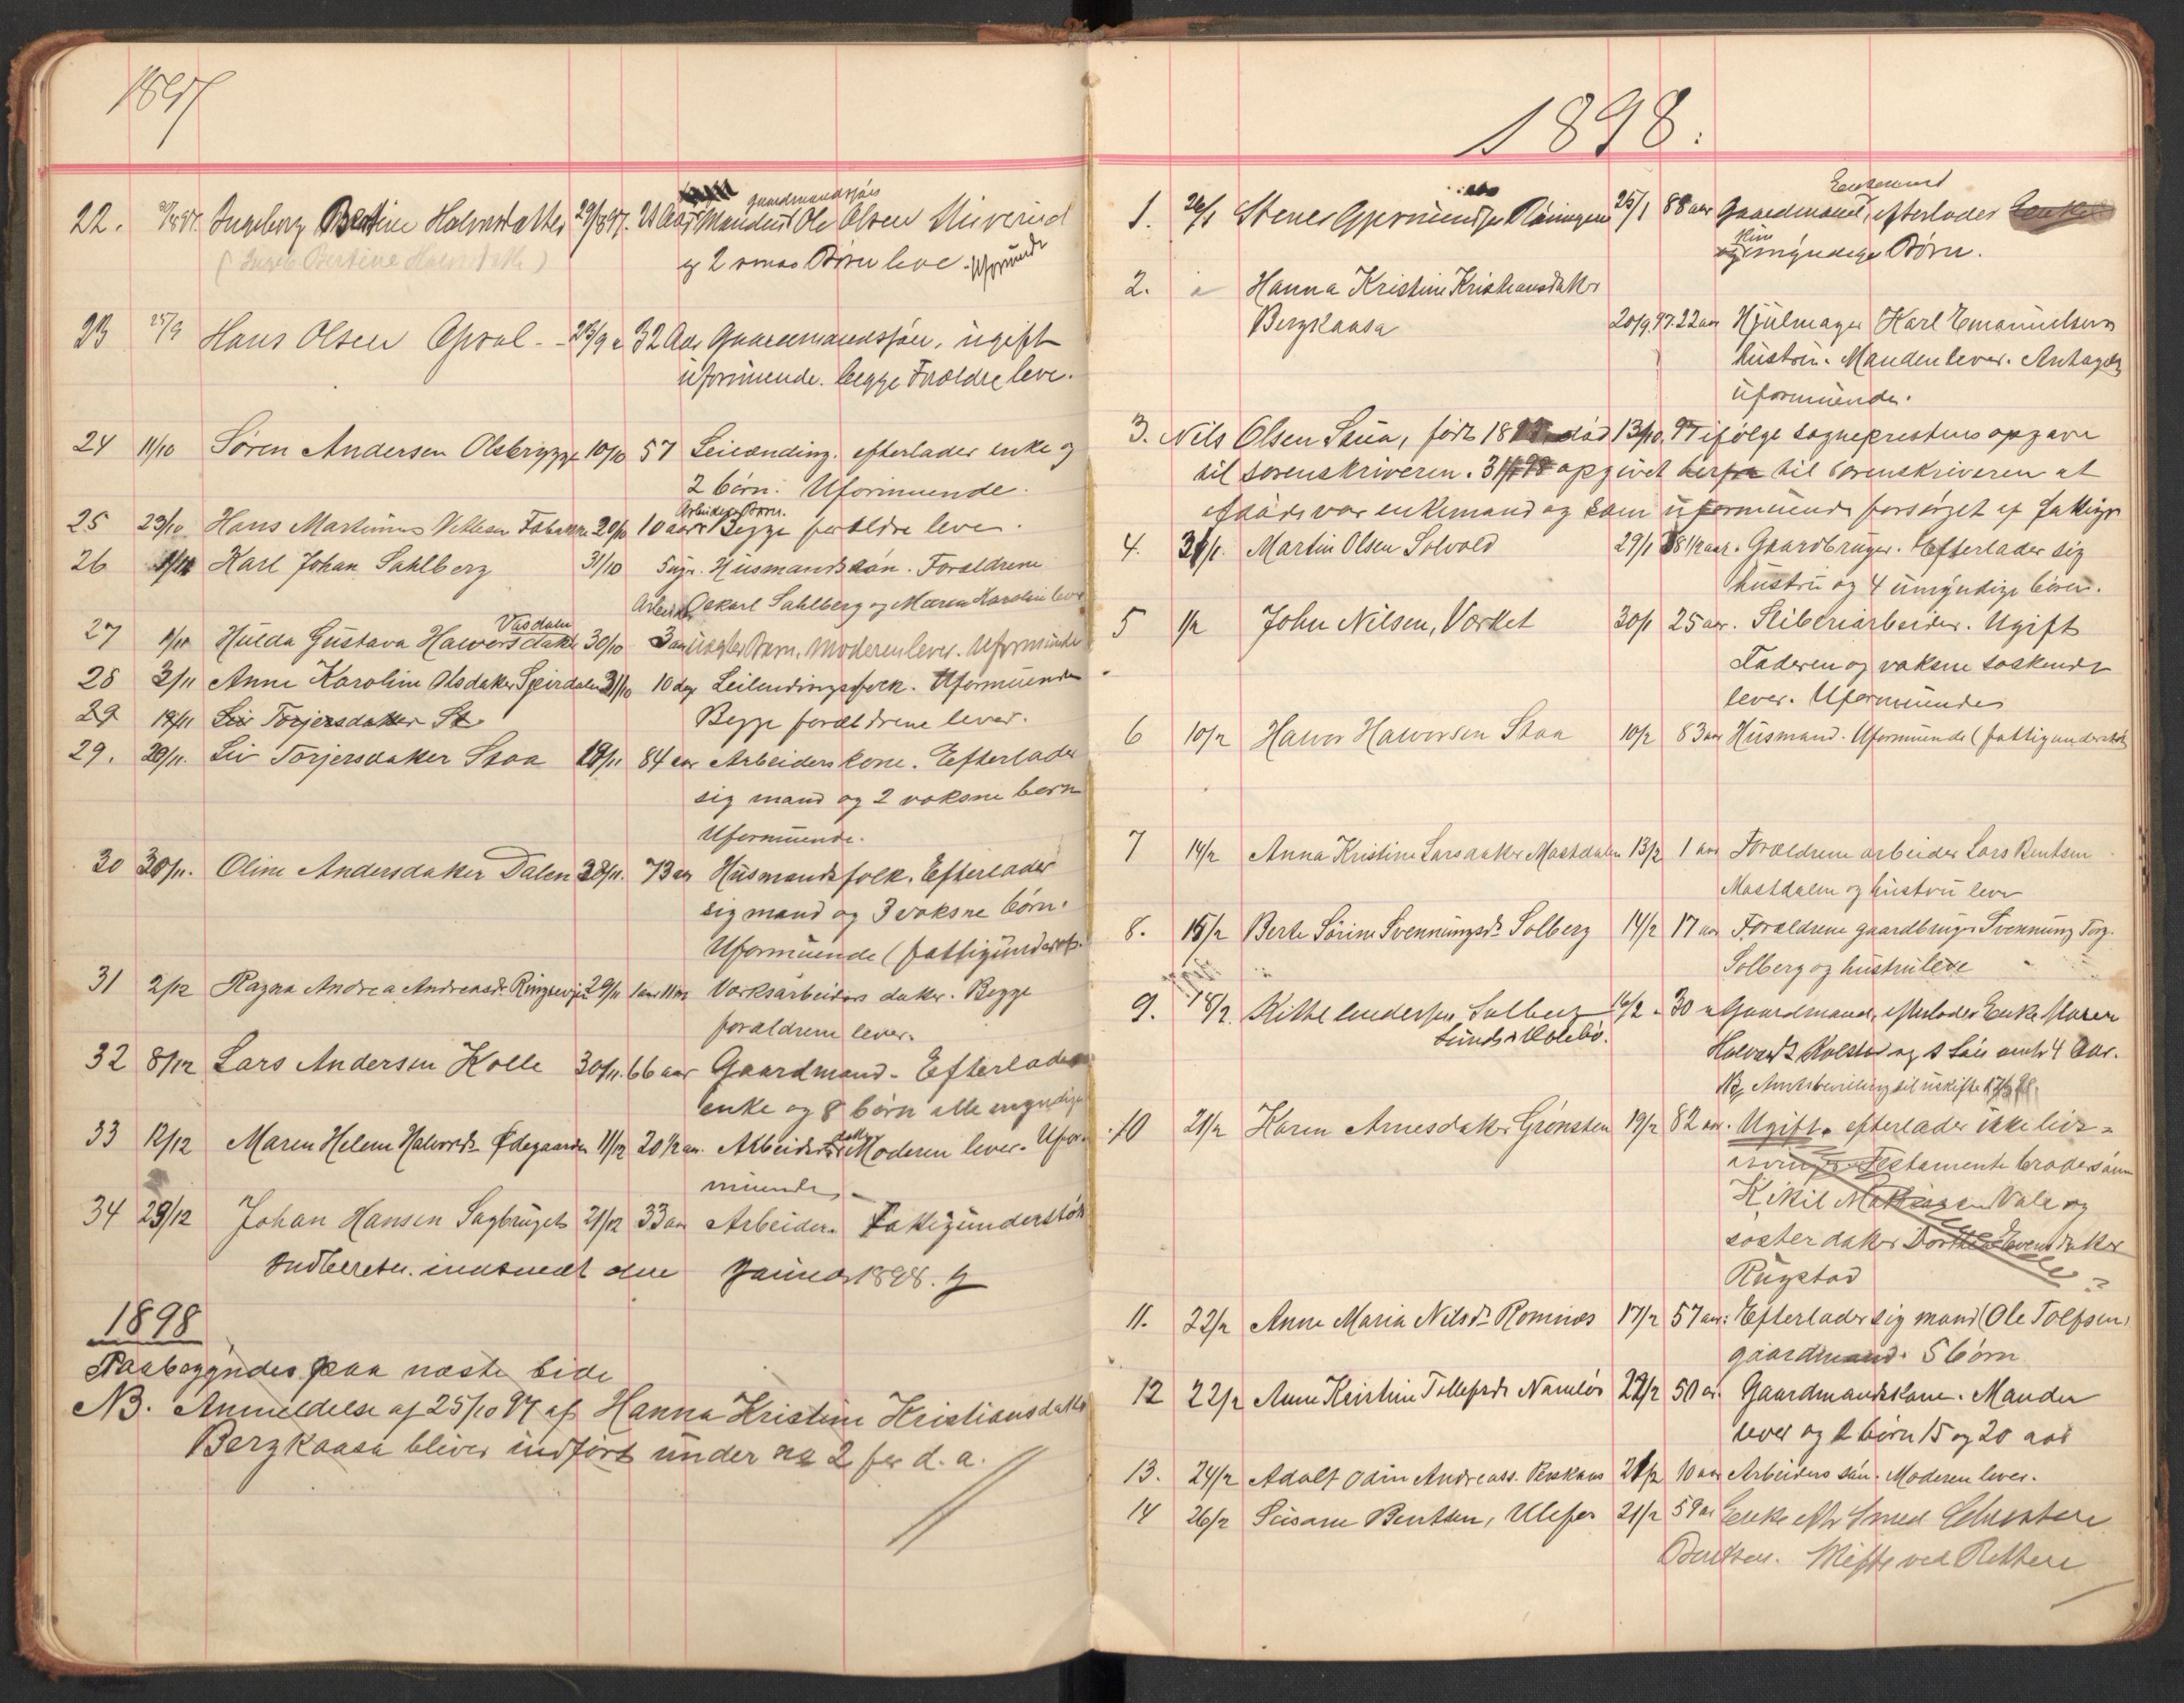 1897
22. Ingeborg Bertine Halvorsdatter 29/8 97. Aar gaardmandsføie Manden Ole Olsen
(Ingeb Bertine Halvorsdatter)
og 2 smaa Børn leve. Uformuende
23 25/9 Hans Olsen Opsal - 23/9 32 Aar Gaardmandssøn, ugift
uformuende. begge Forældre leve.
24 11/10 Søren Andersen Olsbrygge 10/10 57 Leilænding. efterlader enke og
2 børn. Uformuende.
Arbeiders Barn.
25 23/10 Hans Martinus 20/10 10 aar Begge forældre leve.
26 1/11 Karl Johan Sahlberg 31/10 5 Husmandssøn. Forældrene
Arbeider Oskarl Sahlberg og Maren Karoline leve
Vasdalen
27 1/11 Hulda Gustava Halvorsdatter 30/10 3 aar uægte Barn. Moderen lever. Uformuende
28 3/11 Anne Karoline Olsdatter 31/10 10 dage Leilendingsfolk. Uformuende
29 19/11 Liv Torjersdatter St. Begge forældrene lever.
29. 20/11. Liv Torjersdatter Staa 19/11 84 aar Arbeiders kone. Efterlader
sig mand og 2 voksne børn
Uformuende.
30 30/11. Oline Andersdatter Dalen 28/11. 73 aar Husmandsfolk. Efterlader
sig mand og 3 voksne børn.
Uformuende (fattigunderst.
31 2/12 Ragna Andrea Andreasd. 29/11 1 aar 11 m Værksarbeiders datter. Begge
forældrene lever.
32 8/12 Lars Andersen Kolle 30/11. 66 aar Gaardmand. Efterlader
enke og 8 børn alle myndige
33 12/12 Maren Helene Halvorsd. Ødegaarden 11/12 20 1/2 aar. Arbeider datter Moderen lever. Ufor-
muende
34 23/12 Johan Hansen Sagbruget 21/12 33 aar Arbeider. Fattigunderstøt
Indberetn. indsendt den Januar 1898.
1898
Paabegyndes paa næste side
NB. Anmeldelse af 25/10 97 af Hanna Kristine Kristiansdatter
Bergkaasa bliver indført under no 2 for d. a.
1898.
Enkemand
1. 26/1 Stener Gjermundsen 25/1 88 aar Gaardmand, efterlader Enke
og Kun myndige Børn.
2. Hanna Kristine Kristiansdatter
Bergkaasa 20/9 97. 22 aar Hjulmager Karl Emanuelsens
hustru. Manden lever. Antagelig
uformuende.
3. Nils Olsen Saua, født 18 død 13/10 97 ifølge sogneprestens opgave
til sorenskriveren. 31/1 98 opgivet herfra til sorenskriveren at
afdøde var enkemand og som uformuende forsørget af fattigv
4. 31/1. Martin Olsen Solvold 29/1 38 1/2 aar. Gaardbruger. Efterlader sig
hustru og 4 umyndige børn.
5 1/2 John Nilsen, Værket 30/1 25 aar. Sliberiarbeider. Ugift
Faderen og voksne søskende
lever. Uformuende
6 10/2 Halvor Halvorsen Staa 10/2 83 aar Husmand. Uformuende (fattigunderstøt
7 14/2 Anna Kristine Larsdatter Mastdalen 13/2 1 aar Forældrene arbeider Lars Bentsen
Mastdalen og hustru lever
8. 15/2 Berte Sørine Svennungsd. Solberg 14/2 17 aar Forældrene gaardbruger Svennung Torg.
Solberg og hustru leve
9. 18/2. Kittel Andersen Solberg 16/2 30 Gaardmand, efterlader Enke Maren
Halvorsd. Kolstad og 1 Søn omtr 4 Aar.
NB. Amtsbevilling til uskifte
10 21/2 Karen Arnesdatter Grønsten 19/2 82 aar. Ugift. efterlader ikke livs-
arvinger. Testamente brodersønn
Kittil Mathiasen Vale og
søster datter Dorthea Evensdatter
Rugstad
11. 22/2 Anne Maria Nilsd. Romnes 17/2 57 aar: Efterlader sig mand (Ole Tolfsen)
gaardmand. 5 børn
12 22/2 Anne Kirstine Tollefsd. Namløs 22/2 50 ar. Gaardmandskone. Manden
lever og 2 børn 15 og 20 aar
13. 24/2 Adolf Odin Andreass. 21/2 10 aar Arbeiders søn. Moderen lever.
14 26/2 Susane Bentsen, Ulefos 21/2 59 ar Enke efter Smed
Bentsen. Skifte ved Retten